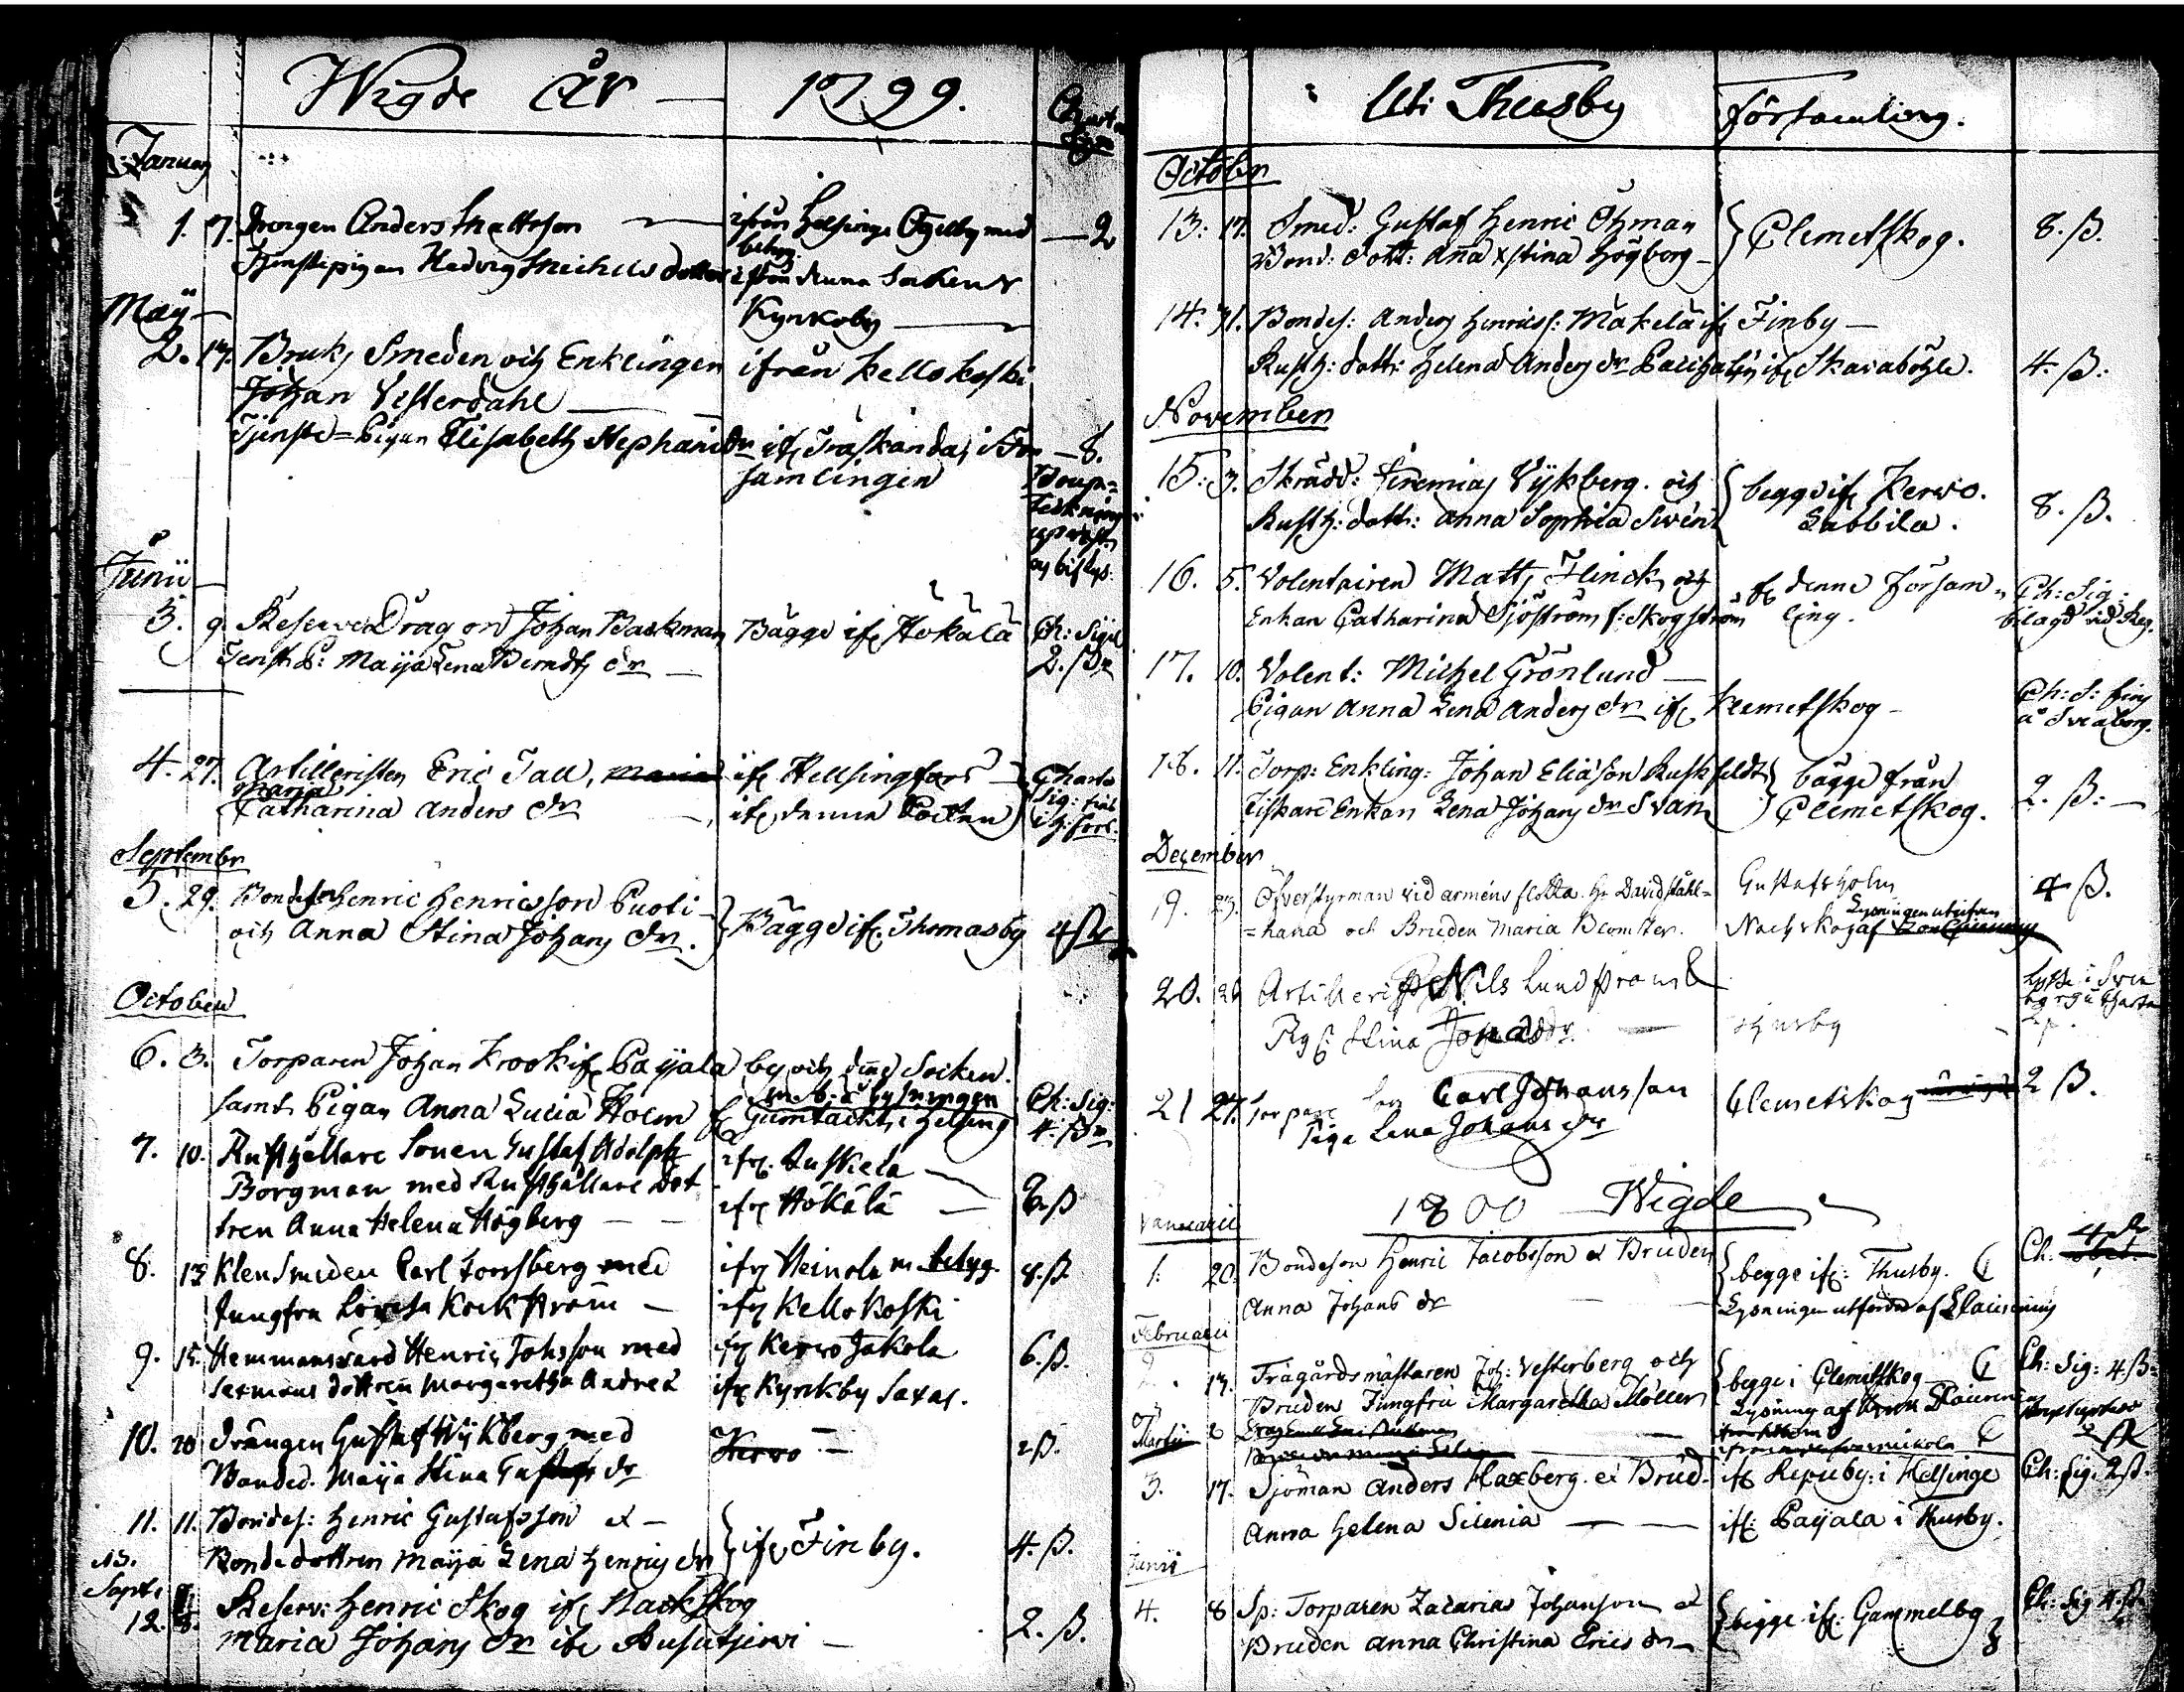 Wigde år — 1799.
Charta
Sigill
Januarj
1. 7. Drengen Anders Mattsson — ifrån Helsinge Ggelby med — 2
betyg.
Tjenstepigan Hedvig Michels dotter ifrån denna Sochen
Maÿ — Kyrkoby —
2. 17. Bruks Smeden och Enklingen ifrån Kellokoski
Johan Vesterdahl —
Tjenste-Pigan Elisabeth Stephans Dr ifr Träskända i För — 8.
samlingen
Junii
3. 9. Reserve Dragon Johan Backman Bägge ifr Hökälä Ch: Sigill
Tienst P: Maija Lena Berndts dr — 2. ßr
4. 27. Artilleristen Eric Tall, Maria ifr Hellsingfors — Charta
Maria Sig:
Catharina Anders dr — ifr denna Socken
Septembr
5. 29. Bondeson Henric Henricsson Puoti-
och Anna Stina Johans dr. Bägge ifr. Thomasby 4 ßr
October
6. 3. Torparen Johan Krook ifr Paijala by och denne Socken.
lysningen Ch: Sig:
samt Pigan Anna Lucia Holm fr Gumtäckt i Helsing 4. ßr
7. 10. Rusthållare Sonen Gustaf Adolph ifr. Ruskela
Borgman med Rusthållare Dot ifr Hökälä — 8 ß
tren Anna Helena Högberg —
8. 13 Klensmeden Carl Forssberg med ifr Heinola m. betyg. 8. ß
Jungfru Lovisa Kockström — ifr Kellokoski
9. 15. Hemmansvärd Henric Johsson med ifr Kervo Jakola 6. ß.
Sexmans dottren Margaretha Andrea ifr Kyrkby
10. 20 drängen Gustaf Wÿkberg med Kervo — 2 ß.
Bonded. Maija Stina Gustafs dr
11. 11. Bondes: Henric Gustafsson et —
Bonde dottren Maija Lena Henrics dr ifr Finby. 4. ß.
NB.
Sept:
12. 8. Reserv: Henric Skog ifr Nackskog
Maria Johans dr ifr Rusutjervi — 2. ß.
Uti Thusby församling.
October
13: 17. Smed: Gustaf Henric Öhman
Bond: Dott: Anna Xstina Högborg — Clemetskog. 8. ß.
14. 31. Bondes: Anders Henricss: Mäkelä ifr Finby —
Rusth: dott: Helena Anders dr ifr Skavaböhle. 4. ß:
November
15: 3. Skrädd: Jeremias Vÿkberg och begge ifr Kervo.
Rusth: dott: Anna Sophia Svén Labbila. 8. ß.
16. 5. Volentairen Matts Flinck och ifr denne Försam- Ch: Sig:
Enkan Catharina Sjöström f: Skogström ling. bilagd vid Reg.
17. 10. Volent: Michel Grönlund —
Pigan Anna Lena Anders dr ifr Klemetskog — Ch: S:
å Sveaborg.
18. 11. Torp: Enkling: Johan Eliasson Ruskfeldt bägge från
Fiskare Enkan Lena Johans dr Svan Clemetskog. 2. ß: —
December
19. 23. Öfverstyrman vid armens flotta Hr David Ståhl= Gustafsholm 4 ß.
Lysningen utifrån
=hana och Bruden Maria Blomster. Nackskog af
20. 26 Artillerist Nils Lundström &
Pig: Stina Jonasdr. — Thusby
21 27. Torpare son Carl Johansson Clemetskog 2 ß.
Piga Lena Johans dr
1800 Wigde
Januarii
1: 20. Bondeson Henric Jacobsson et Bruden begge ifr: Thusby. Ch:
Anna Johans dr — Lysningen utfärdad af
Februarii
2. 13. Trägårdsmästaren Joh: Vesterberg och begge i Clemetskog Ch: Sig: 4 ß:
Bruden Jungfru Margaretha Möller Lysning af
Martii 2
3. 17. Sjöman Anders Haxberg et Brud. ifr Repuby: i Helsinge Ch: Sig. 2 ß.
Anna Helena Silenia — ifr: Paijala i Thusby.
Junii
4. 8 Sp: Torparen Zacarias Johansson et
Bruden Anna Christina Erics dr — begge ifr: Gammelby Ch: Sig 4. ß